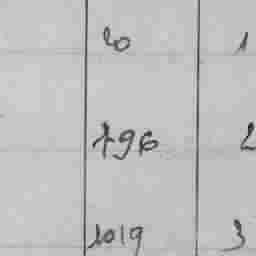 20 1
796 2
1019 3